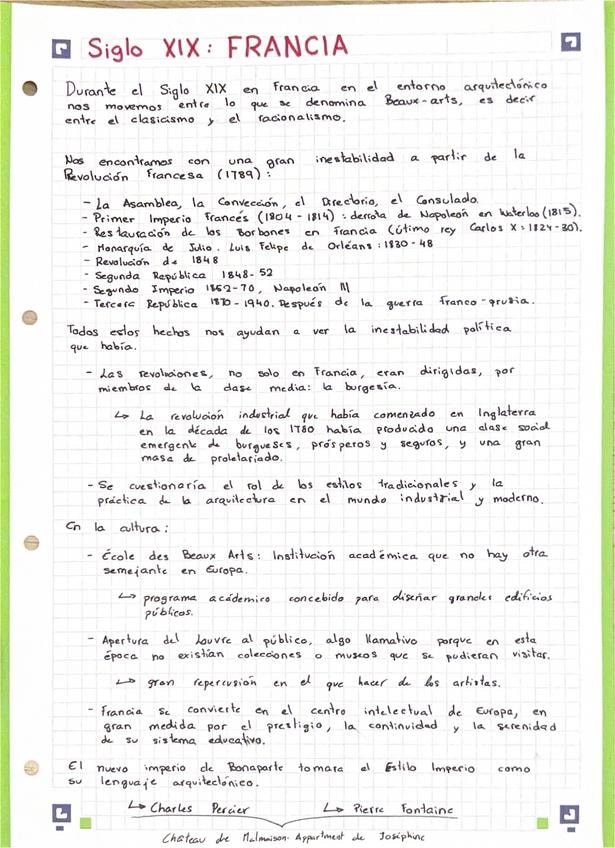 Siglo XIX: FRANCIA
Durante el Siglo XIX en Francia en el entorno arquitectónico
nos movemos entre lo que se denomina Beaux-arts, es decir
entre el clasicismo y el racionalismo.
Nos encontramos con una gran inestabilidad a partir de la
Revolución Francesa (1789):
- La Asamblea, la Convección, el Directorio, el Consulado.
- Primer Imperio Francés (1804 - 1814) : derrota de Napoleón en Waterloo (1815).
- Restauración de los Borbones en Francia (útimo rey Carlos X: 1824-30).
- Monarquía de Julio. Luis Felipe de Orléans: 1830-48
- Revolución de 1848
- Segunda República 1848-52
- Segundo Imperio 1852-70, Napoleón III
- Tercera República 1870-1940. Después de la guerra Franco-prusia.
Todos estos hechos nos ayudan a ver la inestabilidad política
que había.
- Las revoluciones, no solo en Francia, eran dirigidas, por
miembros de la clase media: la burgesía.
↳ La revolución industrial que había comenzado en Inglaterra
en la década de los 1780 había producido una clase social
emergente de burgueses, prósperos y seguros, y una gran
masa de proletariado.
- Se cuestionaría el rol de los estilos tradicionales y la
práctica de la arquitectura en el mundo industrial y moderno.
En la cultura:
- École des Beaux Arts: Institución académica que no hay otra
semejante en Europa.
↳ programa académico concebido para diseñar grandes edificios
públicos.
- Apertura del Louvre al público, algo llamativo porque en esta
época no existían colecciones o museos que se pudieran visitar.
↳ gran repercusión en el que hacer de los artistas.
- Francia se convierte en el centro intelectual de Europa, en
gran medida por el prestigio, la continuidad y la serenidad
de su sistema educativo.
El nuevo imperio de Bonaparte tomara el Estilo Imperio como
su lenguaje arquitectónico.
↳ Charles Percier ↳ Pierre Fontaine
Château de Malmaison. Appartment de Joséphine